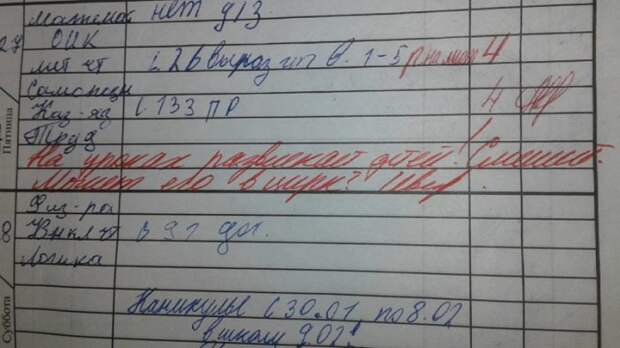 Матем нет д/з
27 ОИК
лит чт с 26 выраз чт в. 1-5 4
Самопозн 4
Каз-яз с. 133 ПР
Пятница
Труд
На уроках развлекает детей! Смешит.
Может его в цирк?
Физ-ра
Внкл чт с 91 дог.
Логика
Суббота
Каникулы с 30.01. по 8.02
в школу 9.02!